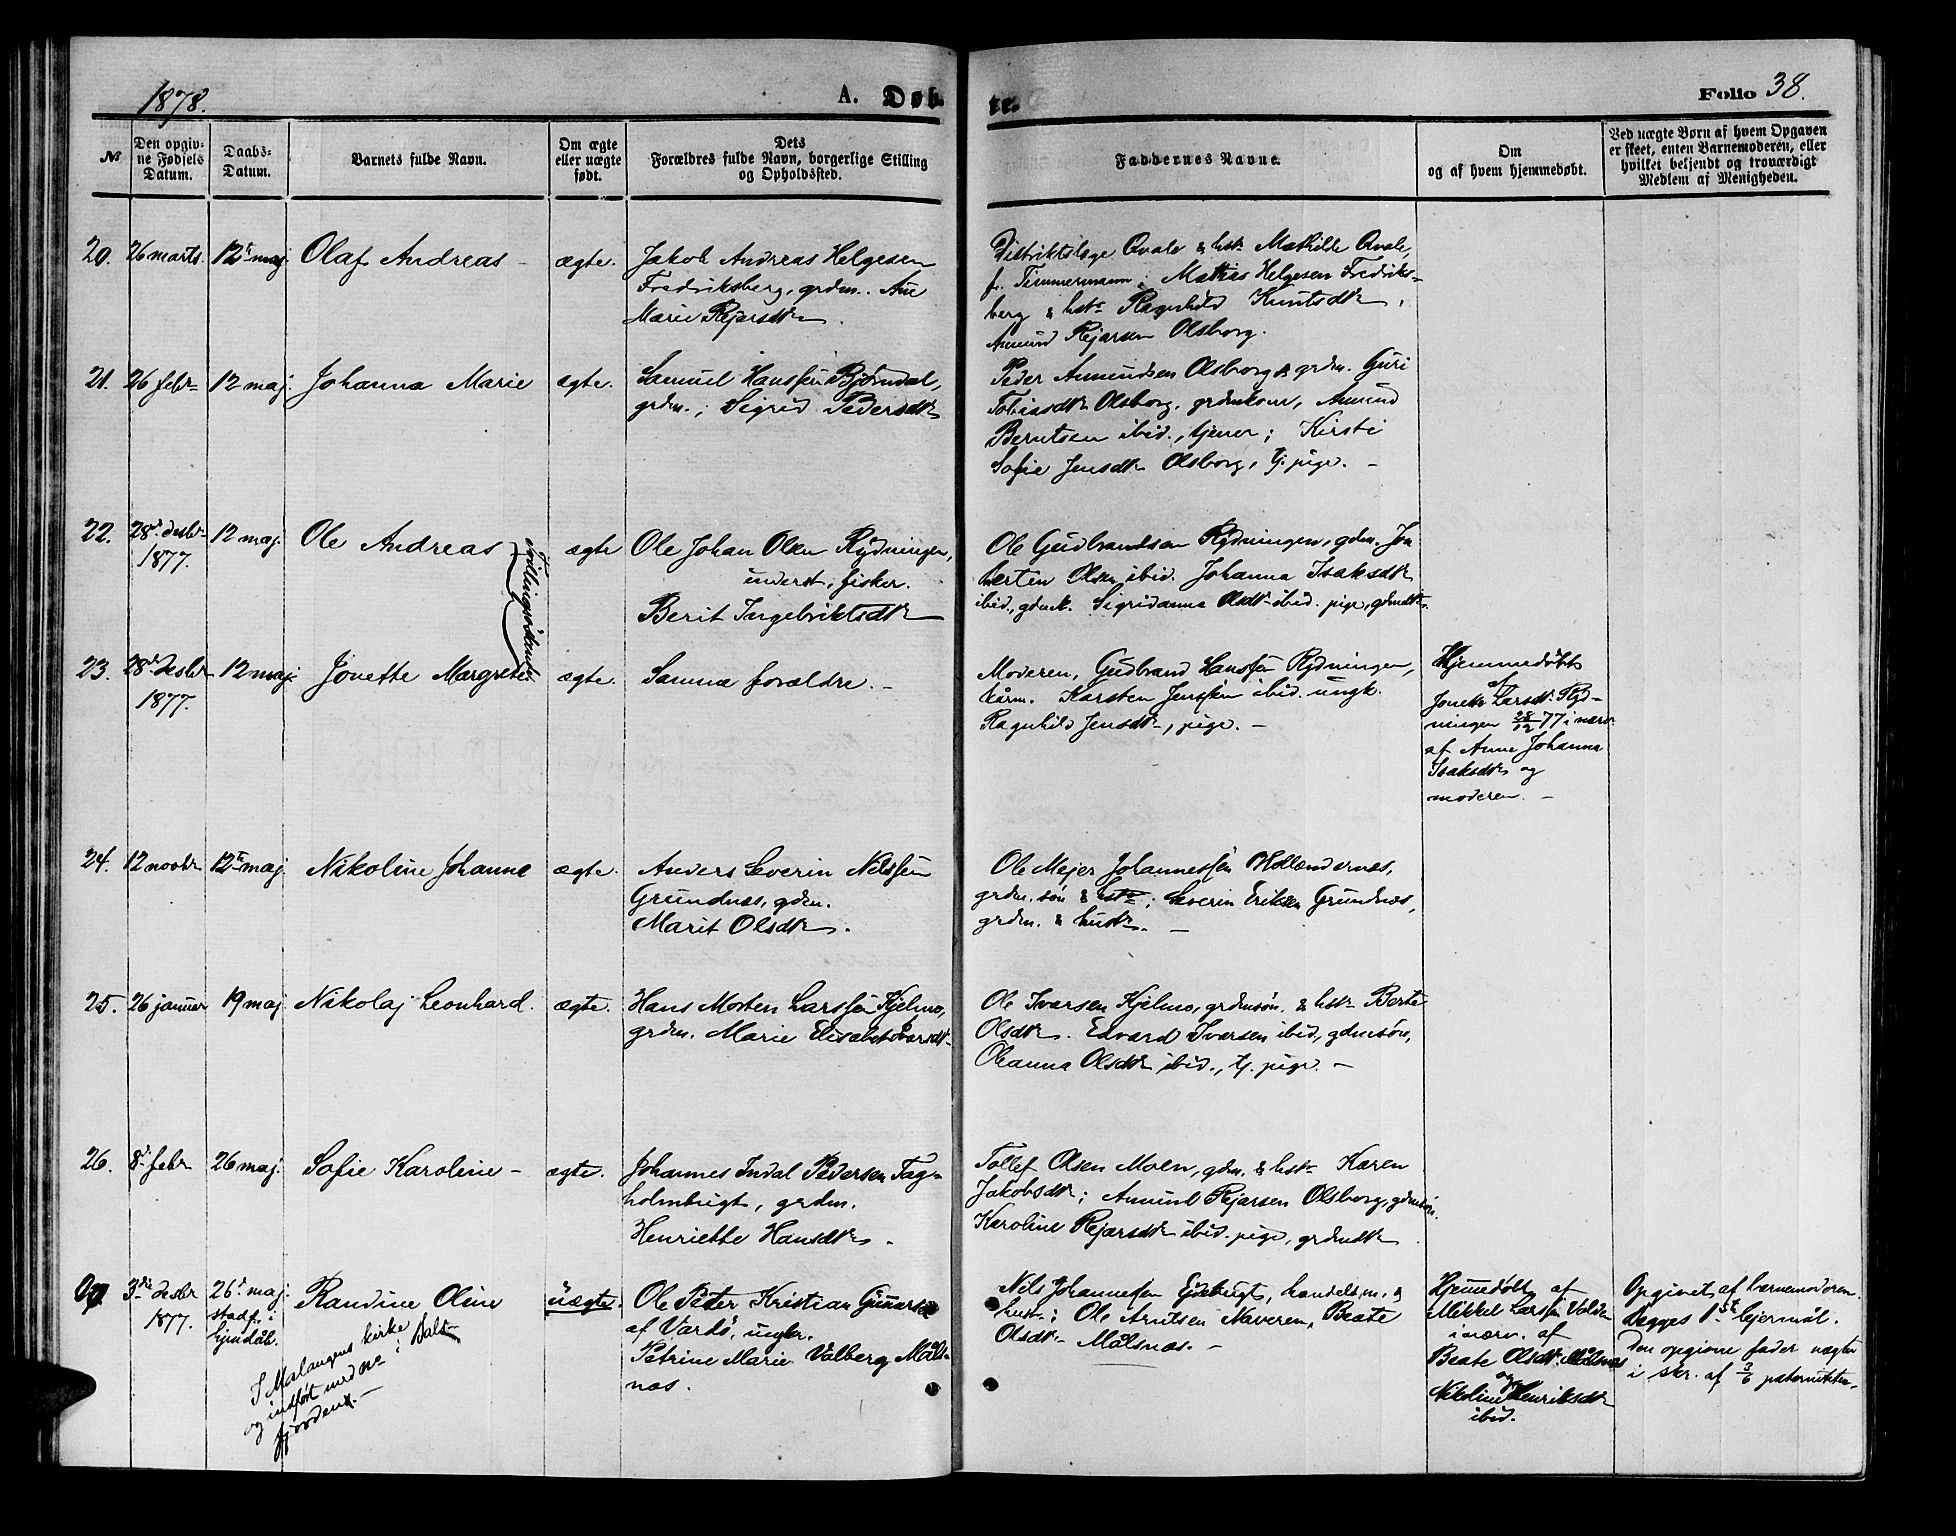 1878.
A. Døb-
te.
Folio 38.
№
Den opgiv-
ne Fødsels
Datum.
Daabs-
Datum.
Barnets fulde Navn.
Om ægte
eller uægte
født.
Dets
Forældres fulde Navn, borgerlige Stilling
og Opholdssted.
Faddernes Navne.
Om
og af hvem hjemmedøbt.
Ved uægte Børn af hvem Opgaven
er skeet, enten Barnemoderen, eller
hvilket beljendt og troværdigt
Medlem af Menigheden.
20. 26 marts 12te maj. Olaf Andreas - ægte. Jakob Andreas Helgesen
Fredriksberg, grdm. Ane
Marie Rejarsdtr.
Distriktslæge Qvale & hstr Mathilde Qvale,
f. Timmermann; Mathias Helgesen Fredriks-
berg & hstr Ragnhild Knutsdtr,
Amund Rejarsen Olsborg.
21. 26 febr 12 maj. Johanna Marie ægte. Samuel Hanssen Bjørndal,
grdm.; Sigrid Pedersdtr
Peder Amundsen Olsborg, grdm. Guri
Tobiasdtr Olsborg, grdmkone, Amund
Berntsen ibid., tjener; Kirsti
Sofie Jensdtr Olsborg, tj. pige. -
22. 28de desbr 12 maj. Ole Andreas ægte Ole Johan Olsen Rydningen,
1877. inderst, fisker.
Berit Ingebriktsdtr
Tvillingsødskende
Ole Gudbrandsen Rydningen, gdm. Jon
Berten Olsen ibid. Johanna Isaksdtr
ibid., gdmk. Sigridanna Olsdtr ibid. pige, gdmdtr.
23. 28de desbr 12 maj. Jonette Margrete ægte. Samme forældre. -
1877.
Moderen, Gudbrand Hanssen Rydningen,
kårm. Karsten Jenssen ibid. ungk.
Ragnhild Jensdtr, pige. -
Hjemmedøbt
af
Jonette Larsdtr Ryd-
ningen 28/12 77 i nærv.
af Anne Johanna
Isaksdtr og
moderen. -
24. 12 novbr 12te maj. Nikoline Johanne ægte. Anders Severin Nilssen
Grundnes, gdm.
Marit Olsdtr.
Ole Mejer Johannessen Hollendernes,
grdm. søn & hstr; Severin Eriksen Grundnes,
grdm. & hustr. -
25. 26 januar 19 maj. Nikolaj Leonhard. ægte. Hans Morten Larssen Kjelmo,
grdm. Marie Elisabet Ivarsdtr
Ole Ivarsen Kjelmo, grdmsøn. & hstr Berte
Olsdtr. Edvard Ivarsen ibid., gdmsøn,
Oleanna Olsdtr ibid., tj. pige. -
26. 8de febr 26 maj. Sofie Karoline - ægte. Johannes Indal Pedersen Fag-
holmbugt, grdm.
Henriette Hansdtr.
Tollef Olsen Moen, gdm. & hstr Karen
Jakobsdtr; Amund Rejarsen Olsborg, gdmsøn.
Karoline Rejarsdtr ibid. pige, grdmdtr
27. 3die desbr 26de maj. Randine Oline uægte. Ole Peter Kristian Gunarsen
1877. stadf. i af Vardø, ungkr.
hjemdåb. Petrine Marie Valberg Måls-
nes.
I Malangens kirke
og indført med no i Dals-
fjorden. -
Nils Johannesen Gjisbugt, handelsm. &
hustr; Ole Arntsen Naveren, Beate
Olsdtr Målsnes. -
Hjemmedøbt af
Mikkel Larssen
i nærv. af
Beate Olsdtr Målsnes
og
Nikoline Henriksdtr
ibid.
Opgivet af barnemoderen.
Begges 1ste lejermål.
Den opgivne fader nægter
i skr. af 3/6 paterniteten.